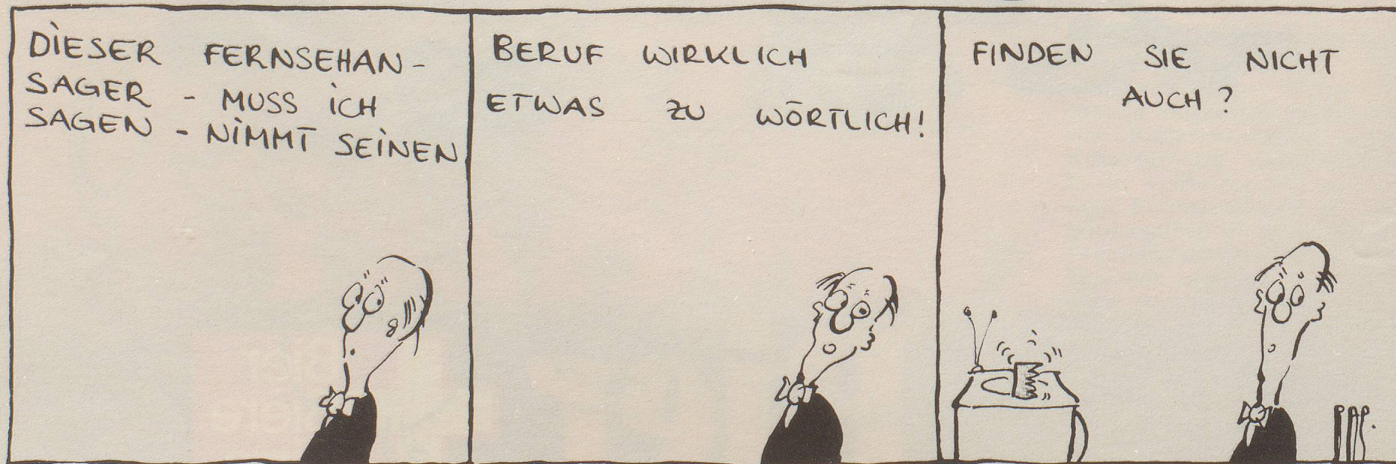 DIESER FERNSEHAN-
SAGER - MUSS ICH
SAGEN - NIMMT SEINEN
BERUF WIRKLICH
ETWAS ZU WÖRTLICH!
FINDEN SIE NICHT
AUCH?
PAP.